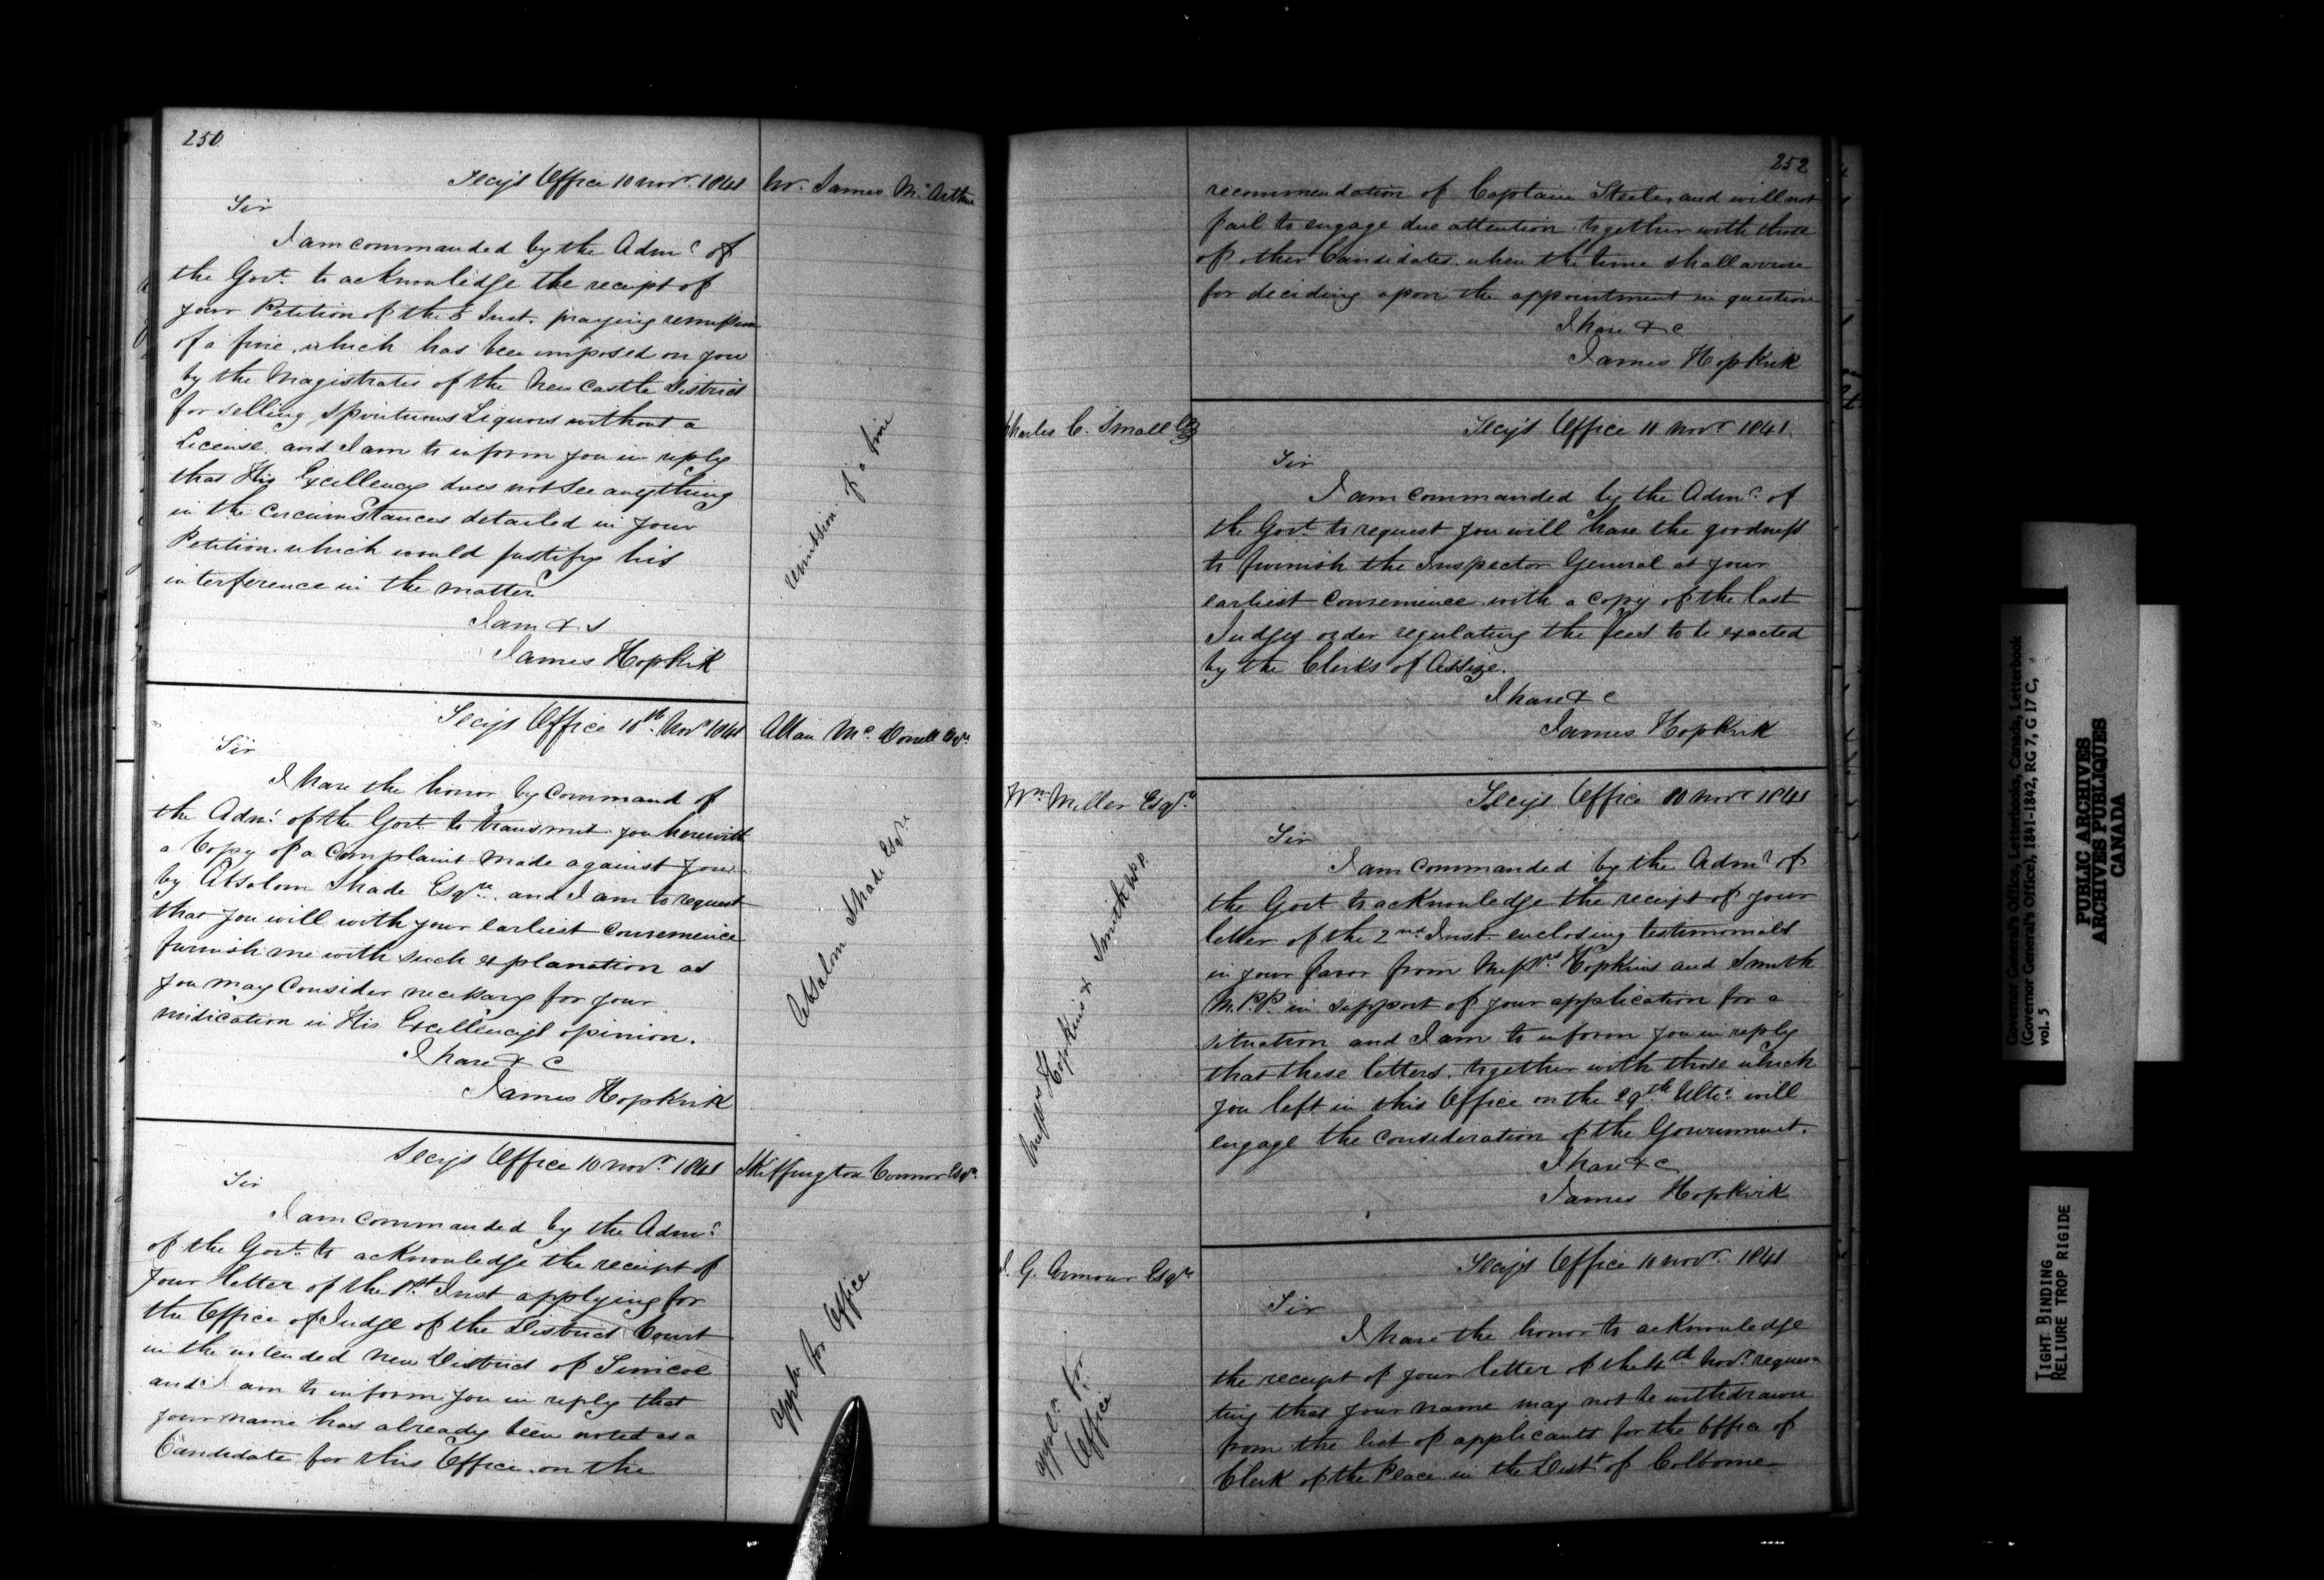 250
Secy's Office 10 Novr. 1841
Mr. James Mc Arthur
Sir
I am commanded by the Admr. of
the Govt. to acknowledge the receipt of
your Petition of the 5 Inst. praying remission
of a fine, which has been imposed on you
by the Magistrates of the New Castle District
for selling Spirituous Liquors without a
License, and I am to inform you in reply
that His Excellency does not see anything
in the circumstances detailed in your
Petition which would justify his
interference in the matter
I am &
James Hopkirk
remission of a fine
Secy's Office 10th. Novr 1841
Allan Mc. Donell Esqr.
Sir
I have the honor by Command of
the Admr. of the Govt. to transmit you herewith
a Copy of a Complaint made against you
by Absolom Shade Esqre. and I am to request
that you will with your earliest convenience
furnish me with such explanation as
you may Consider necessary for your
vindication in His Excellency's opinion.
I have & c
James Hopkirk
Absalom Shade Esqre
Secy's Office 10 Novr. 1841
Skeffington Connor Esqr.
Sir
I am commanded by the Admr.
of the Govt. to acknowledge the receipt of
your letter of the 1st. Inst applying for
the Office of Judge of the District Court
in the intended New District of Simcoe
and I am to inform you in reply that
your name has already been noted as a
Candidate for this Office, on the
appln for Office
252
recommendation of Captain Steele, and will not
fail to engage due attention together with those
of other Candidates, when the time shall arrive
for deciding upon the appointment in question
I have & c
James Hopkirk
Charles C. Small Esq
Secy's Office 11 Novr 1841.
Sir
I am commanded by the Admr. of
the Govt. to request you will have the goodness
to furnish the Inspector General at your
earliest convenience with a copy of the last
Judges order regulating the fees to be exacted
by the Clerks of Assize.
I have & c
James Hopkirk
Wm. Miller Esqr.
Secy's Office 10 Novr 1841
Sir
I am commanded by the Admr. of
the Govt to acknowledge the receipt of your
letter of the 2nd. Inst. enclosing testimonials
in your favor from Messrs Hopkins and Smith
M.P.P. in support of your application for a
situation and I am to inform you in reply
that these letters, together with those which
you left in this Office on the 29th Ulto. will
engage the consideration of the Government.
I have & c
James Hopkirk
Messrs Hopkins & Smith M.P.P.
Secy's Office 11 Novr. 1841
G. Armour Esqr
Sir
I have the honor to acknowledge
the receipt of your letter of the 4th Novr. reques
ting that your name may not be withdrawn
from the list of applicants for the Office of
Clerk of the Peace in the Distt. of Colborne
appln. for
Office
Governor General's Office, Letterbooks, Canada, Letterbook
(Governor General's Office), 1841-1842, RG 7, G 17 C,
vol. 5
PUBLIC ARCHIVES
ARCHIVES PUBLIQUES
CANADA
TIGHT BINDING
RELIURE TROP RIGIDE